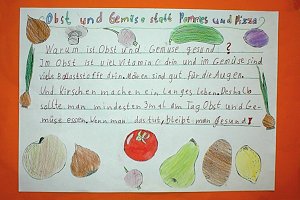 Obst und Gemüse statt Pommes und Pizza
Warum ist Obst und Gemüse gesund ?
Im Obst ist viel Vitamin C drin und im Gemüse sind
viele Balaststoffe drin. Möhren sind gut für die Augen.
Und Kirschen machen ein langes leben. Deshalb
sollte man mindesten 5 mal am Tag Obst und Ge-
müse essen. Wenn man das tut, bleibt man gesund!